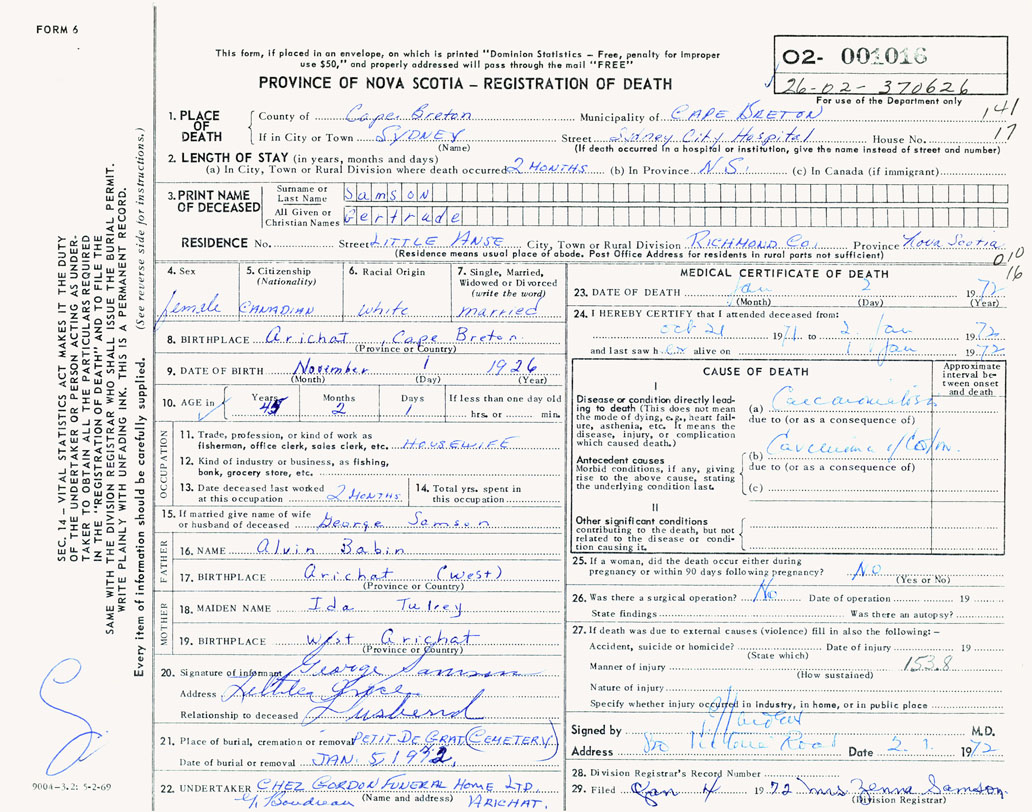 FORM 6
This form, if placed in an envelope, on which is printed "Dominion Statistics - Free, penalty for improper
use $50," and properly addressed will pass through the mail "FREE"
PROVINCE OF NOVA SCOTIA - REGISTRATION OF DEATH
02- 001016
26-02-370626
For use of the Department only
141
17
1. PLACE OF DEATH County of Cape Breton Municipality of CAPE BRETON
If in City or Town SYDNEY Street Sidney City Hospital House No.
(Name) (If death occurred in a hospital or institution, give the name instead of street and number)
2. LENGTH OF STAY (in years, months and days)
(a) In City, Town or Rural Division where death occurred 2 MONTHS (b) In Province N.S. (c) In Canada (if immigrant)
3. PRINT NAME OF DECEASED Surname or Last Name Samson
All Given or Christian Names Gertrude
RESIDENCE No. Street LITTLE ANSE City, Town or Rural Division RICHMOND CO. Province Nova Scotia
(Residence means usual place of abode. Post Office Address for residents in rural parts not sufficient)
010
16
4. Sex female
5. Citizenship (Nationality) CANADIAN
6. Racial Origin white
7. Single, Married, Widowed or Divorced (write the word) married
8. BIRTHPLACE Arichat, Cape Breton
(Province or Country)
9. DATE OF BIRTH November 1 1926
(Month) (Day) (Year)
10. AGE in Years 45 Months 2 Days 1 If less than one day old
hrs. or min.
OCCUPATION
11. Trade, profession, or kind of work as
fishermen, office clerk, sales clerk, etc. HOUSEWIFE
12. Kind of industry or business, as fishing,
bank, grocery store, etc.
13. Date deceased last worked at this occupation 2 MONTHS 14. Total yrs. spent in this occupation
15. If married give name of wife
or husband of deceased George Samson
FATHER
16. NAME Alvin Babin
17. BIRTHPLACE Arichat (West)
(Province or Country)
MOTHER
18. MAIDEN NAME Ida
19. BIRTHPLACE West Arichat
(Province or Country)
20. Signature of informant George Samson
Address Little
Relationship to deceased Husband
21. Place of burial, cremation or removal PETIT DE GRAT (CEMETERY)
Date of burial or removal JAN. 5 1972
22. UNDERTAKER CHEZ GORDON FUNERAL HOME LTD.
(Name and address) Boudreau ARICHAT.
MEDICAL CERTIFICATE OF DEATH
23. DATE OF DEATH Jan 2 1972
(Month) (Day) (Year)
24. I HEREBY CERTIFY that I attended deceased from:
Oct 21 1971 to 2 Jan 1972
and last saw her alive on 1 Jan 1972
CAUSE OF DEATH
Approximate interval between onset and death
I
Disease or condition directly leading to death (This does not mean the mode of dying, e.g., heart failure, asthenia, etc. It means the disease, injury, or complication which caused death.)
(a)
due to (or as a consequence of)
Antecedent causes
Morbid conditions, if any, giving rise to the above cause, stating the underlying condition last.
(b) Carcinoma of Colon.
due to (or as a consequence of)
(c)
II
Other significant conditions
contributing to the death, but not related to the disease or condition causing it.
25. If a woman, did the death occur either during
pregnancy or within 90 days following pregnancy? No
(Yes or No)
26. Was there a surgical operation? No Date of operation 19
State findings Was there an autopsy?
27. If death was due to external causes (violence) fill in also the following: -
Accident, suicide or homicide? Date of injury 19
(State which)
Manner of injury 153.8
(How sustained)
Nature of injury
Specify whether injury occurred in industry, in home, or in public place
Signed by M.D.
Address Road Date 2.1. 1972
28. Division Registrar's Record Number
29. Filed Jan 4 1972 Mrs Zenna Samson
(Division Registrar)
SEC. 14 - VITAL STATISTICS ACT MAKES IT THE DUTY
OF THE UNDERTAKER OR PERSON ACTING AS UNDER-
TAKER TO OBTAIN ALL THE PARTICULARS REQUIRED
IN THE "REGISTRATION OF DEATH" AND TO FILE THE
SAME WITH THE DIVISION REGISTRAR WHO SHALL ISSUE THE BURIAL PERMIT.
WRITE PLAINLY WITH UNFADING INK. THIS IS A PERMANENT RECORD.
Every item of information should be carefully supplied. (See reverse side for instructions.)
9004-3.2: 5-2-69